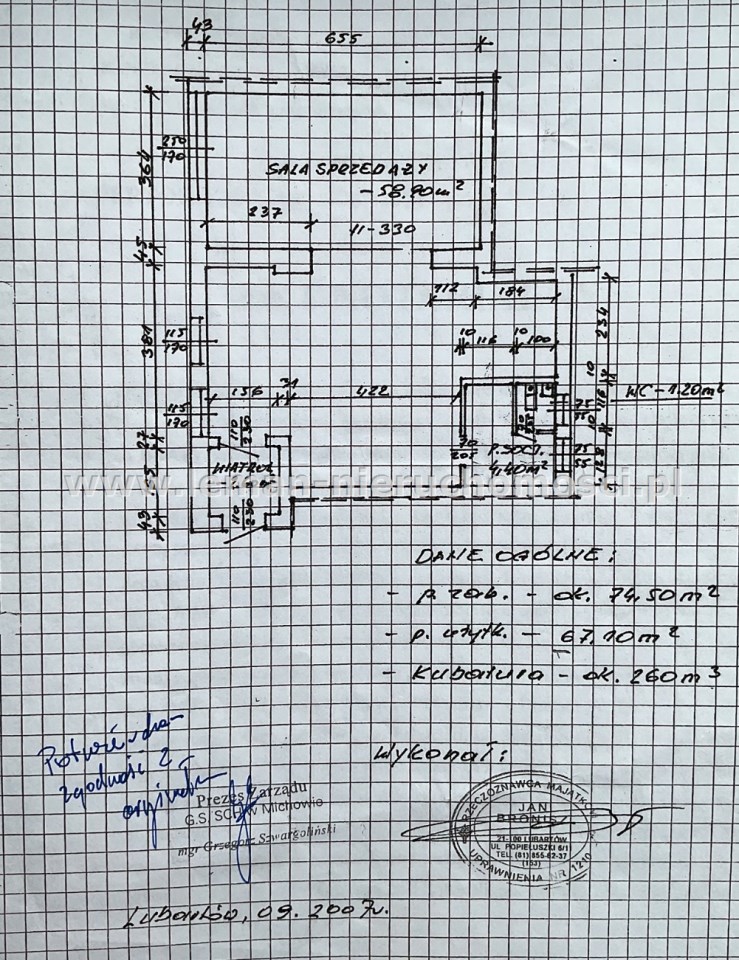 43
655
250
170
364
SALA SPRZEDAŻY
-58,90m²
237
H-330
45
112
184
115
170
381
10
116
10
100
234
10
156
31
422
116
WC-1.20m²
115
170
110
230
70
205
75
55
10
27
WIATROŁ.
P. SOCJ.
4,40m²
75
55
128
43
110
230
www.leman-nieruchomosci.pl
DANE OGÓLNE:
- p. zab. - ok. 74,50m²
- p. użytk. - 67.10m²
- Kubatura - ok. 260m³
Wykonał:
zgodność z
Prezes Zarządu
G.S. SCH w Michowie
mgr Grzegorz Szwargoliński
RZECZOZNAWCA MAJĄTKOWY
JAN
BRONISZ
21-100 LUBARTÓW
UL. POPIEŁUSZKI 6/1
TEL. (81) 855-62-37
(153)
UPRAWNIENIA NR 1210
Lubartów, 09.2007r.